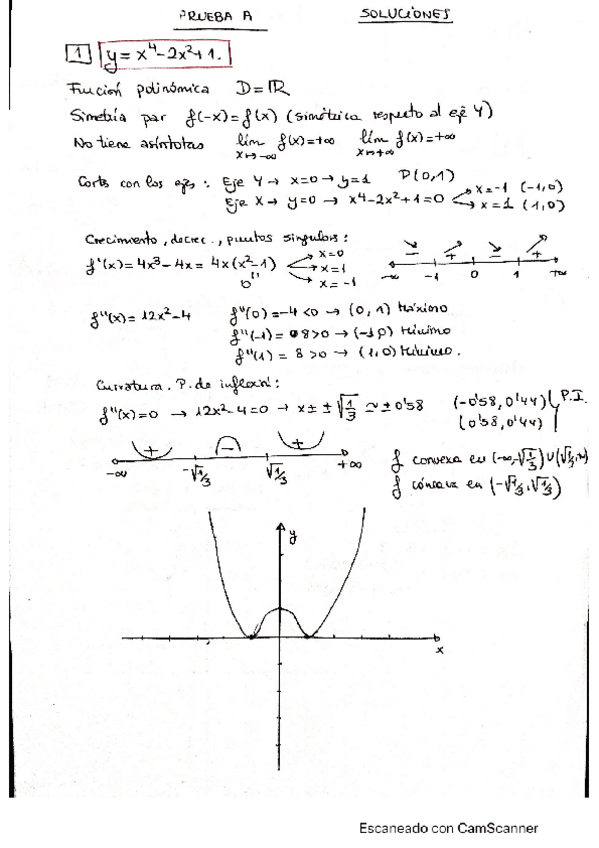 PRUEBA A SOLUCIONES
1 y = x⁴-2x²+1.
Función polinómica D=ℝ
Simetría par f(-x)=f(x) (simétrica respecto al eje Y)
No tiene asíntotas lím f(x)=+∞ lím f(x)=+∞
x→-∞ x→+∞
Corte con los ejes: Eje Y → x=0 → y=1 P(0,1)
Eje X → y=0 → x⁴-2x²+1=0 x=-1 (-1,0)
x=1 (1,0)
Crecimiento, decrec., puntos singulares:
f'(x)=4x³-4x= 4x(x²-1) x=0
x=1
x=-1
0''
- + - +
-∞ -1 0 1 +∞
f''(x)=12x²-4 f''(0)=-4<0 → (0,1) Máximo
f''(-1)= 8>0 → (-1,0) Mínimo
f''(1)= 8>0 → (1,0) Mínimo.
Curvatura. P. de inflexión:
f''(x)=0 → 12x²-4=0 → x=±√1/3 ≃ ±0'58 (-0'58, 0'44) P.I.
(0'58, 0'44)
+ - +
-∞ -√1/3 √1/3 +∞
f convexa en (-∞,-√1/3)∪(√1/3,∞)
f cóncava en (-√1/3,√1/3)
y
x
Escaneado con CamScanner